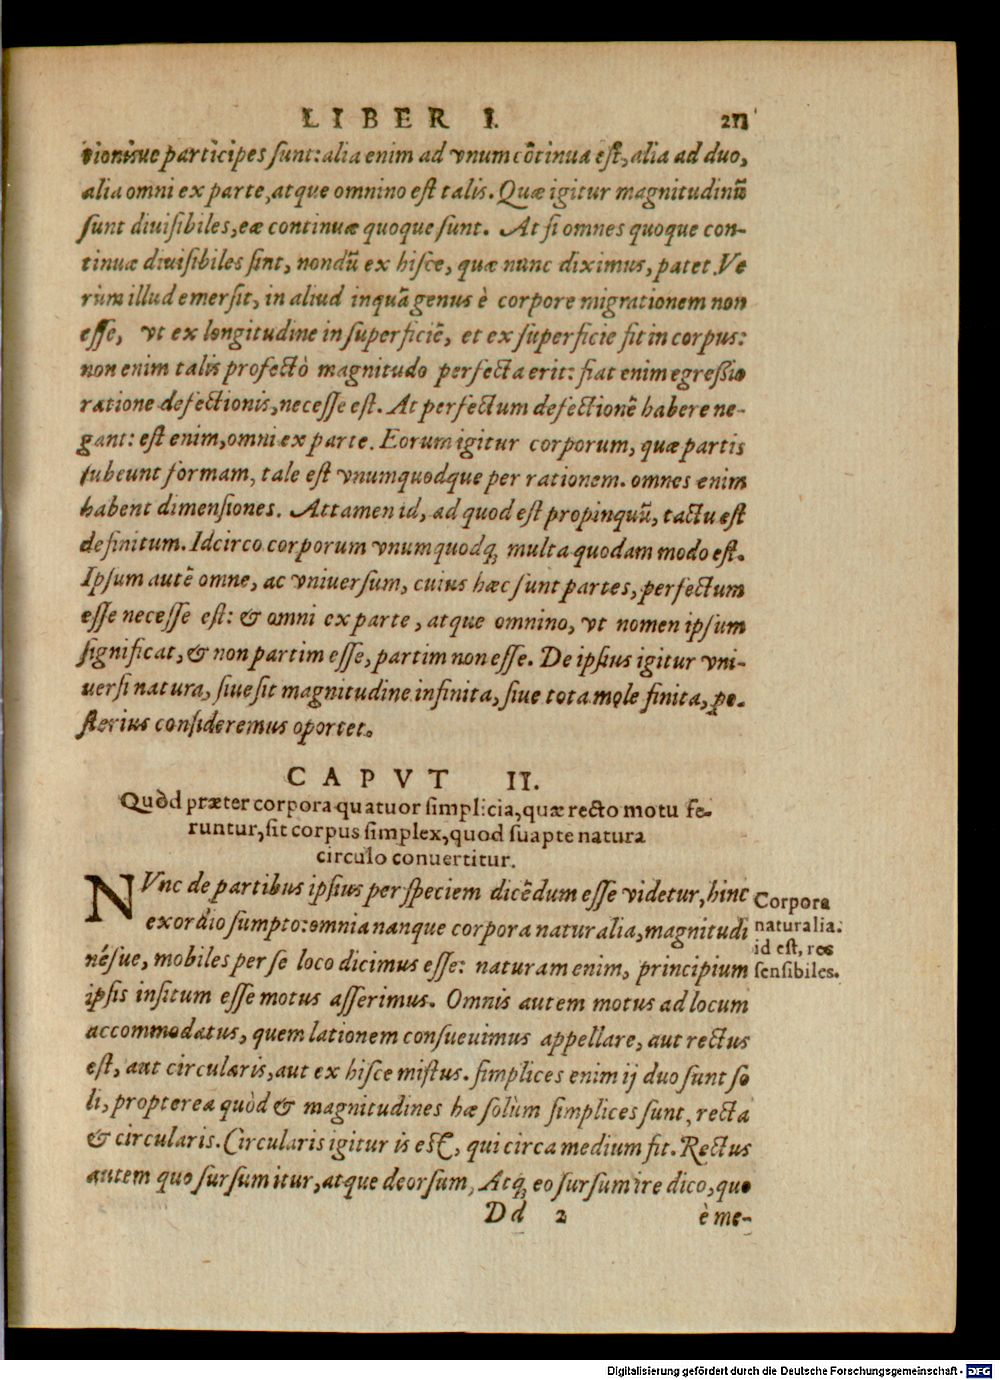 LIBER I. 211
tionisue participes sunt: alia enim ad vnum cõtinua est, alia ad duo,
alia omni ex parte, atque omnino est talis. Quæ igitur magnitudinũ
sunt diuisibiles, eæ continuæ quoque sunt. At si omnes quoque con-
tinuæ diuisibiles sint, nondũ ex hisce, quæ nunc diximus, patet. Ve
rùm illud emersit, in aliud inquã genus è corpore migrationem non
esse, vt ex longitudine in superficiẽ, et ex superficie fit in corpus:
non enim talis profectò magnitudo perfecta erit: fiat enim egressio
ratione defectionis, necesse est. At perfectum defectionẽ habere ne-
gant: est enim, omni ex parte. Eorum igitur corporum, quæ partis
subeunt formam, tale est vnumquodque per rationem. omnes enim
habent dimensiones. Attamen id, ad quod est propinquũ, tactu est
definitum. Idcirco corporum vnumquodq; multa quodam modo est.
Ipsum autẽ omne, ac vniuersum, cuius hæc sunt partes, perfectum
esse necesse est: & omni ex parte, atque omnino, vt nomen ipsum
significat, & non partim esse, partim non esse. De ipsius igitur vni-
uersi natura, siue sit magnitudine infinita, siue tota mole finita, po-
sterius consideremus oportet.
CAPVT II.
Quòd præter corpora quatuor simplicia, quæ recto motu fe-
runtur, sit corpus simplex, quod suapte natura
circulo conuertitur.
NVnc de partibus ipsius per speciem dicẽdum esse videtur, hinc
exordio sumpto: omnia nanque corpora naturalia, magnitudi
nésue, mobiles per se loco dicimus esse: naturam enim, principium
ipsis insitum esse motus asserimus. Omnis autem motus ad locum
accommodatus, quem lationem consueuimus appellare, aut rectus
est, aut circularis, aut ex hisce mistus. simplices enim ij duo sunt so
li, propterea quòd & magnitudines hæ solùm simplices sunt, recta
& circularis. Circularis igitur is est, qui circa medium fit. Rectus
autem quo sursum itur, atque deorsum, Atq; eo sursum ire dico, quo
Dd 2 è me-
Corpora
naturalia.
id est, res
sensibiles.
Digitalisierung gefördert durch die Deutsche Forschungsgemeinschaft - DFG